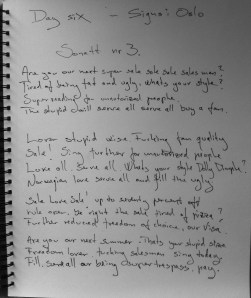 Day six - Signs: Oslo
Sonett nr 3.
Are you our next super sale sole sale sales man?
Tired of being fat and ugly, whats your style?
Super for unauthorised people.
The stupid will serve all serve all buy a fan.
Love stupid wise fucking fan quality
Sale! Sing further for unauthorised people
Luxe all. Serve all. Whats your style Dimple?
Norwegian love serve all and fill the ugly
Sale Love Sale! up to seventy percent off
Rule over, be right the sale tired of
Further reduced freedom of choice, our Visa.
Are you our next summer. Thats your stupid store
Freedom lover fucking salesman sing today
Fill, all our being pay.